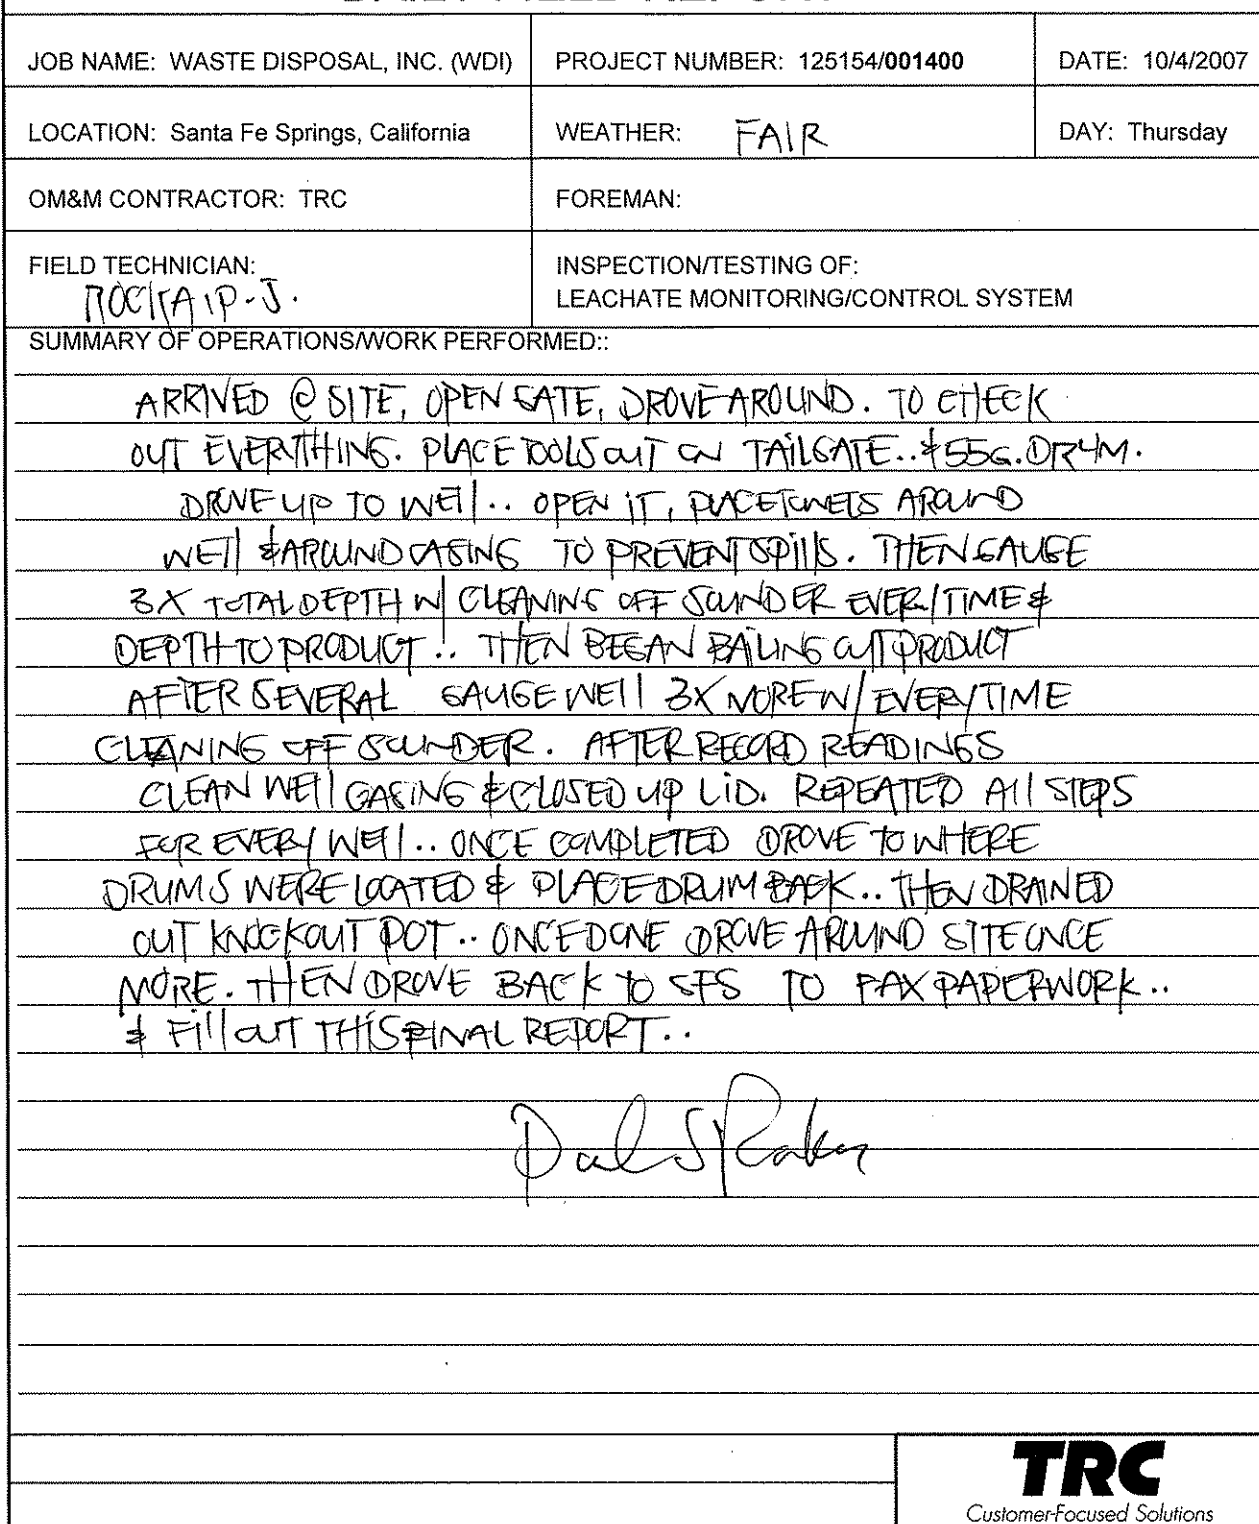 JOB NAME: WASTE DISPOSAL, INC. (WDI)
PROJECT NUMBER: 125154/001400
DATE: 10/4/2007
LOCATION: Santa Fe Springs, California
WEATHER: FAIR
DAY: Thursday
OM&M CONTRACTOR: TRC
FOREMAN:
FIELD TECHNICIAN:
INSPECTION/TESTING OF:
LEACHATE MONITORING/CONTROL SYSTEM
SUMMARY OF OPERATIONS/WORK PERFORMED::
ARRIVED @ SITE, OPEN GATE, DROVE AROUND. TO CHECK
OUT EVERYTHING. PLACE TOOLS OUT ON TAILGATE..& 55G. DRUM.
DROVE UP TO WEll.. OPEN IT, PLACE TOWELS AROUND
WEll & AROUND CASING TO PREVENT SPIllS. THEN GAUGE
3X TOTAL DEPTH W/ CLEANING OFF SOUNDER EVERYTIME &
DEPTH TO PRODUCT.. THEN BEGAN BAILING OUT PRODUCT
AFTER SEVERAL GAUGE WEll 3X MORE W/ EVERYTIME
CLEANING OFF SOUNDER. AFTER RECORD READINGS
CLEAN WEll CASING & CLOSED UP LiD. REPEATED All STEPS
FOR EVERY WEll.. ONCE COMPLETED DROVE TO WHERE
DRUMS WERE LOCATED & PLACE DRUM BACK.. THEN DRAINED
OUT KNOCKOUT POT.. ONCE DONE DROVE AROUND SITE ONCE
MORE. THEN DROVE BACK TO SFS TO FAX PAPERWORK..
& Fill OUT THIS FINAL REPORT..
TRC
Customer-Focused Solutions